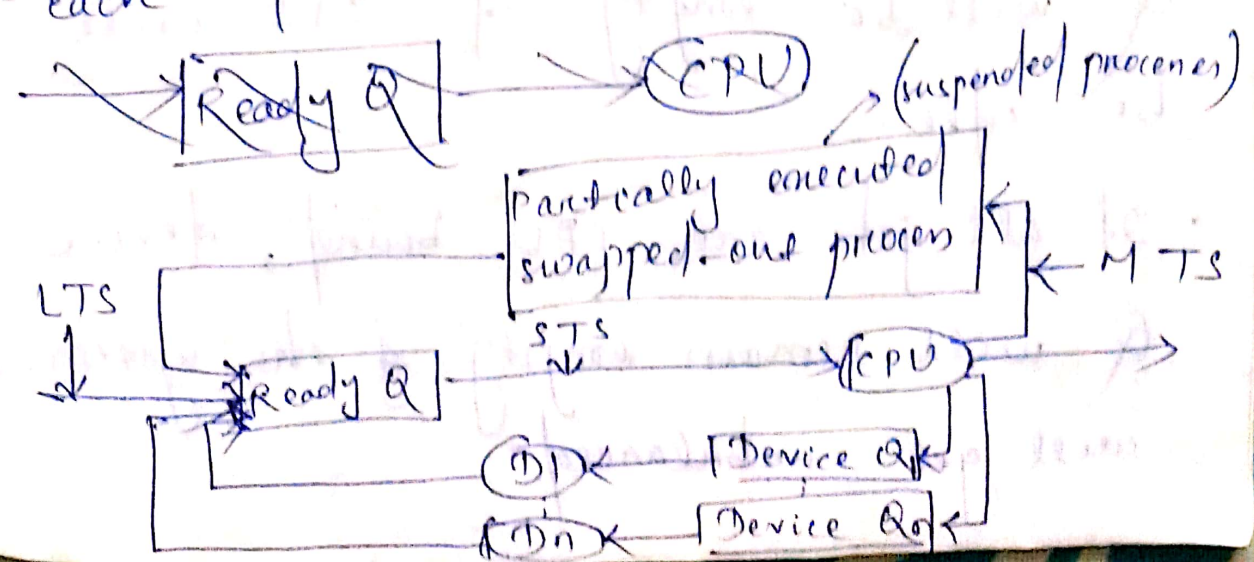 each
Ready Q
CPU
(suspended processes)
Partically executed
swapped. out process
MTS
LTS
STS
Ready Q
CPU
D1
Device Q1
Dn
Device Qn